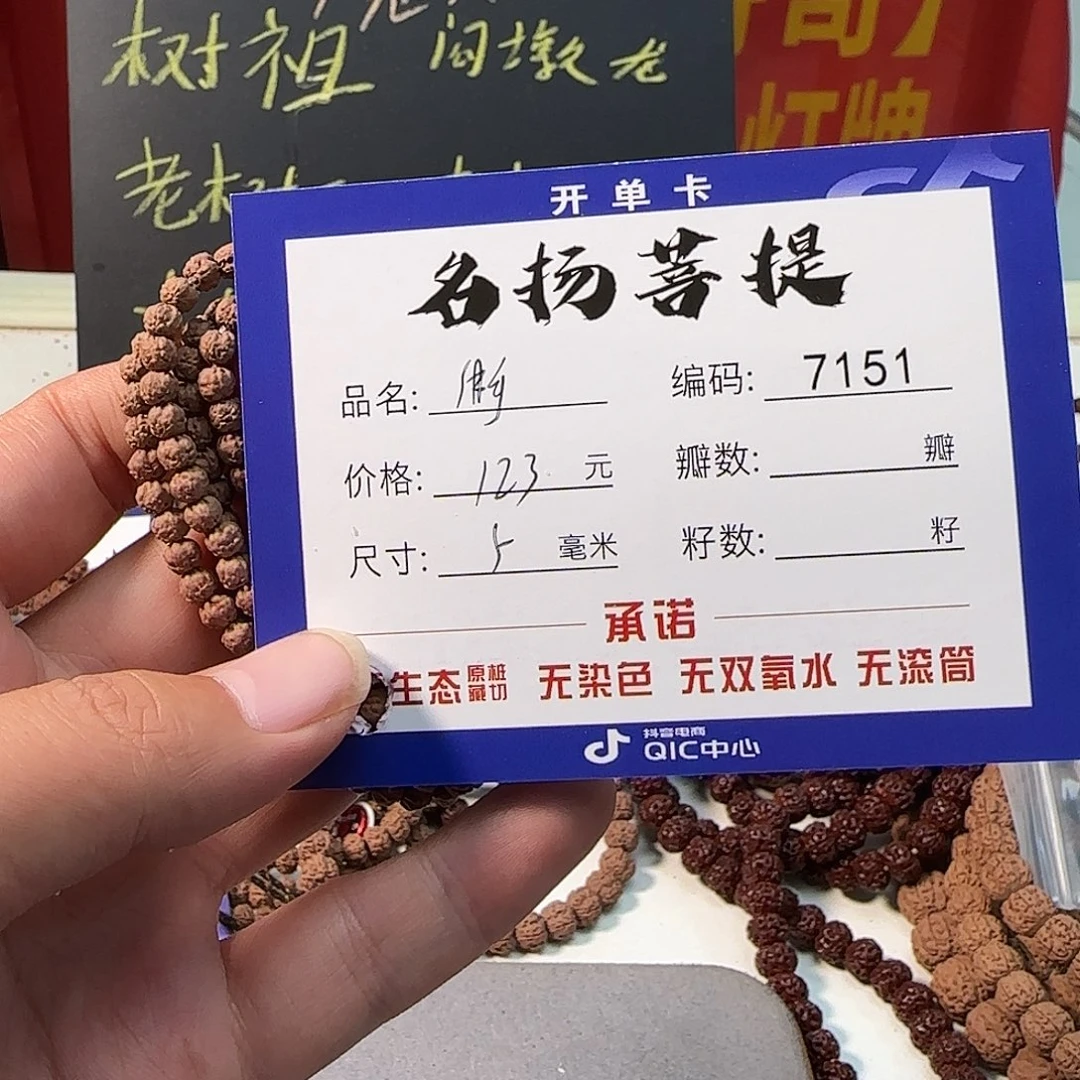 树祖 闷墩龙
老树
灯牌
开单卡
名扬菩提
品名:
编码: 7151
价格: 123 元
瓣数: 瓣
尺寸: 5 毫米
籽数: 籽
承诺
生态 原桩藏切 无染色 无双氧水 无滚筒
抖音电商
QIC中心